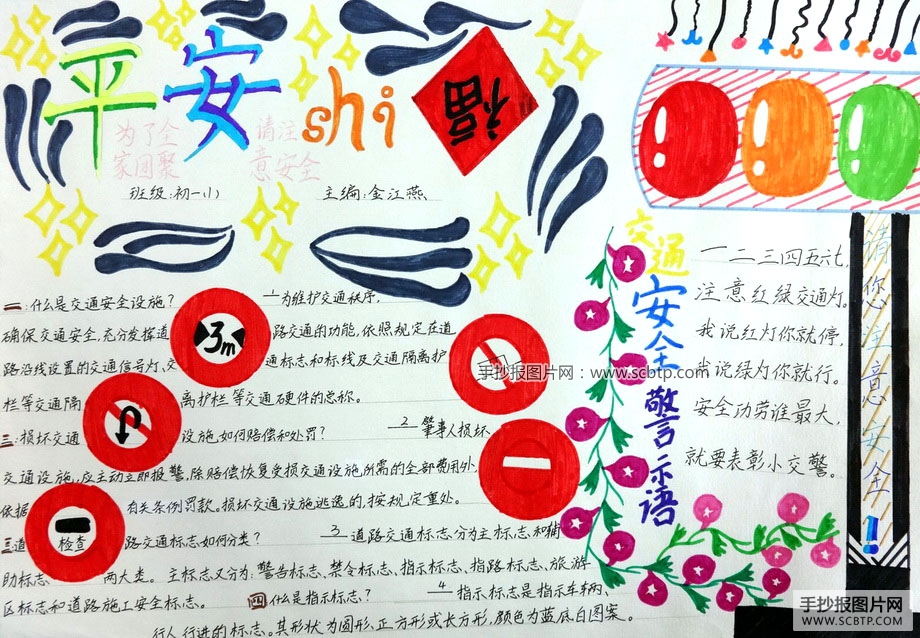 平安shi福
为了全家团聚
请注意安全
班级:初一(1)
主编:金江燕
二:什么是交通安全设施? 1 为维护交通秩序,
确保交通安全,充分发挥道路交通的功能,依照规定在道
路沿线设置的交通信号灯、交通标志和标线及交通隔离护
栏等交通隔离护栏等交通硬件的总称。
三:损坏交通设施,如何赔偿和处罚? 2 肇事人损坏
交通设施,应主动立即报警,除赔偿恢复受损交通设施所需的全部费用外,
依据有关条例罚款。损坏交通设施逃逸的,按规定重处。
三道路交通标志如何分类? 3 道路交通标志分为主标志和辅
助标志两大类。主标志又分为:警告标志、禁令标志、指示标志、指路标志、旅游
区标志和道路施工安全标志。 四什么是指示标志? 4 指示标志是指示车辆、
行人行进的标志。其形状为圆形、正方形或长方形,颜色为蓝底白图案。
3m
检查
交通安全警示语
一二三四五六七,
注意红绿交通灯。
我说红灯你就停,
我说绿灯你就行。
安全功劳谁最大,
就要表彰小交警。
请您注意安全!
手抄报图片网:www.scbtp.com
手抄报图片网
WWW.SCBTP.COM